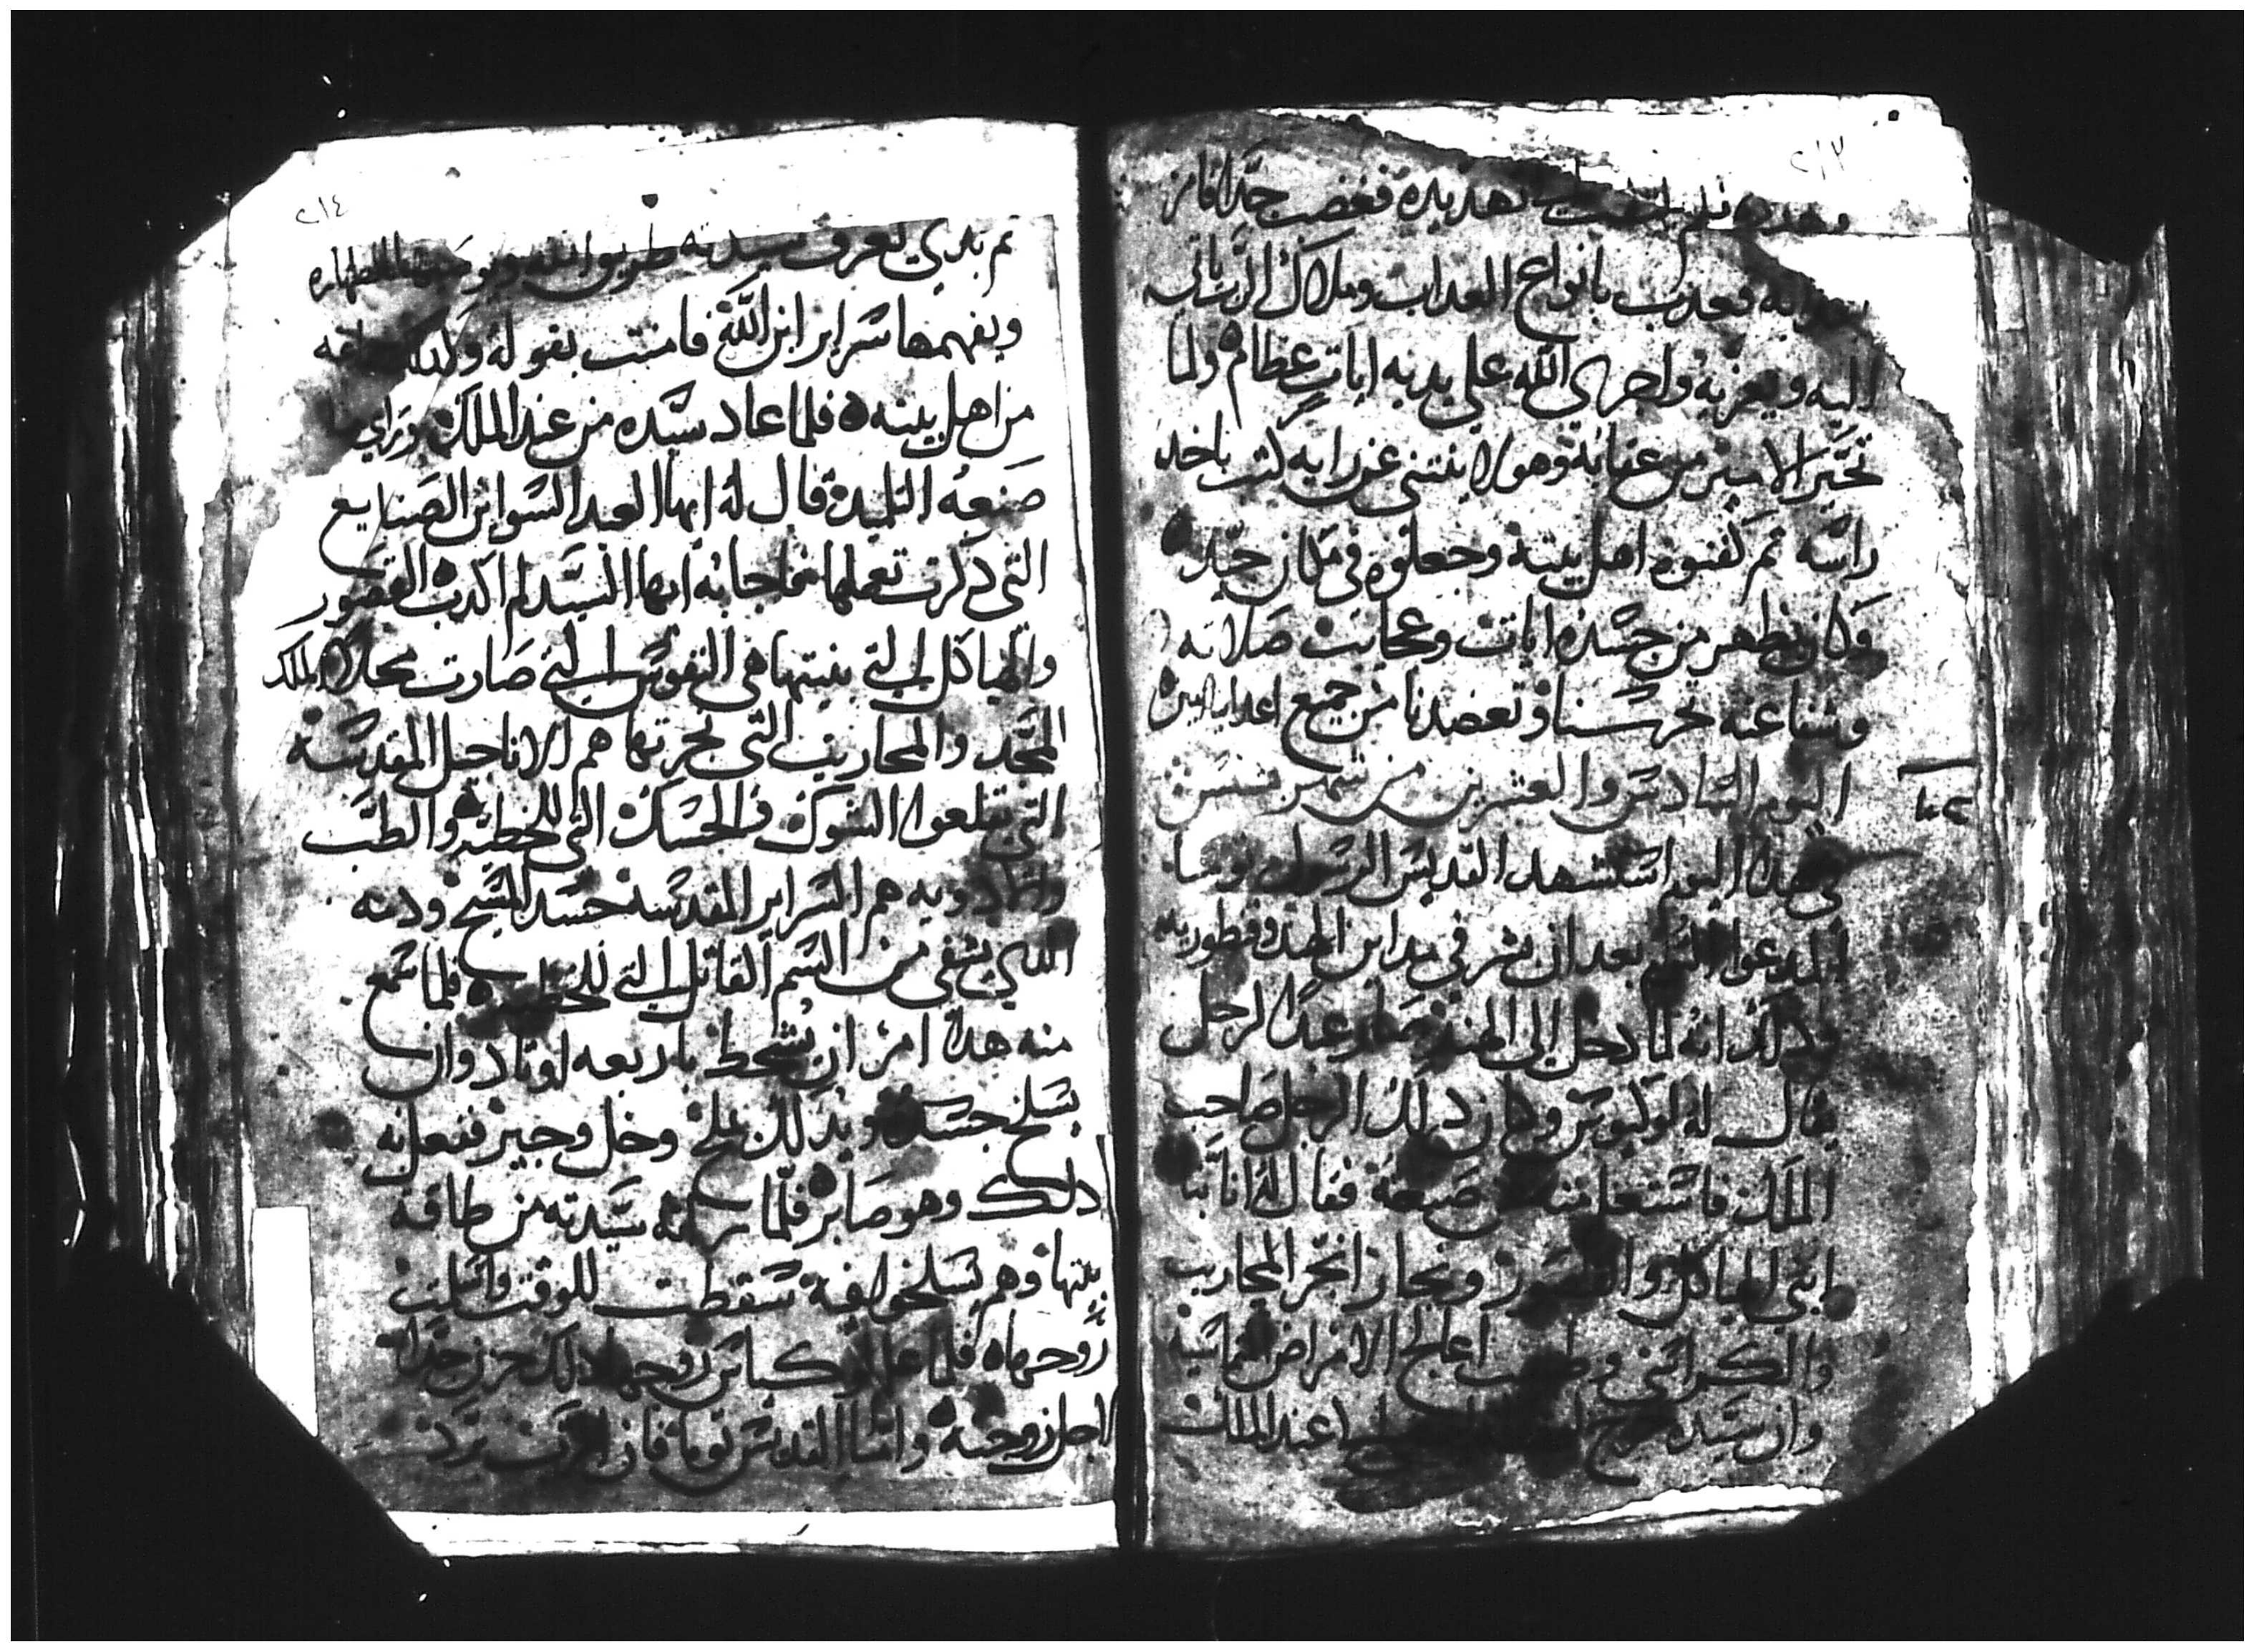 ٢١٣
وهدده فلم تهديده فغضب جدًا فامر
بعدابه فعدب بانواع العداب وملاك الرب ياتي
اليه ويعزيه واجرى الله علي يديه ايات عظام ولما
تحير الامير من عقابه وهو لا ينتني عن رايه كتب باخد
راسه ثم كفنوه اهل بيته وجعلوه في مكان جيد
وكان يظهر من جسده ايات وعجايب صلاته
وشفاعته تحرسنا وتعضدنا من جميع اعداينا امين
اليوم السادس والعشرين من شهر بشنس
في هدا اليوم استشهد القديس الرسول توما
المدعوا بعد ان بشر في مداين الهند وقطوريه
ودلك انه لما دخل الى الهند صار عبدًا لرجل
يقال له لوكيوس وكان دلك الرجل صاحب
الملك فاستعلم منه عن صنعته فقال له انا بنا
ابني الهياكل والقصور ونجار انجر المحاريب
والكراسي وطبيب اعالج الامراض القاسيه
وان سيده خرج عند الملك
٢١٤
ثم بدي يعرف سيدته طريق الله ويوصيها الطهاره
ويفهمها سراير ابن الله فامنت بقوله وكدلك جماعه
من اهل بيته فلما عاد سيده من عند الملك وراي
صنعه التلميد قال له ايها العبد السو اين الصنايع
التي دكرت تعملها فاجابه ايها السيد لم اكدب القصور
والهياكل التي بنيتها هي النفوس التي صارت محلا لملك
المجد والمحاريب التي نجرتها هم الاناجيل المقدسه
التي تقلعوا الشوك والحسك التي للخطيه والطب
والادويه هم السراير المقدسه جسد المسيح ودمه
الدي يشفي من السم القاتل التي للخطيه فلما سمع
منه هدا امر ان يشحط باربعه اوتاد وان
يسلخ جسده ويدلك بملح وخل وجير ففعل به
دلك وهو صابر فلما سيدته من طاقه
بيتها وهم يسلخوا فيه سقطت للوقت واسلمت
روحها فلما علم لوكياس زوجها دلك حزن جدًا
لاجل زوجته واما القديس توما فان الرب برد